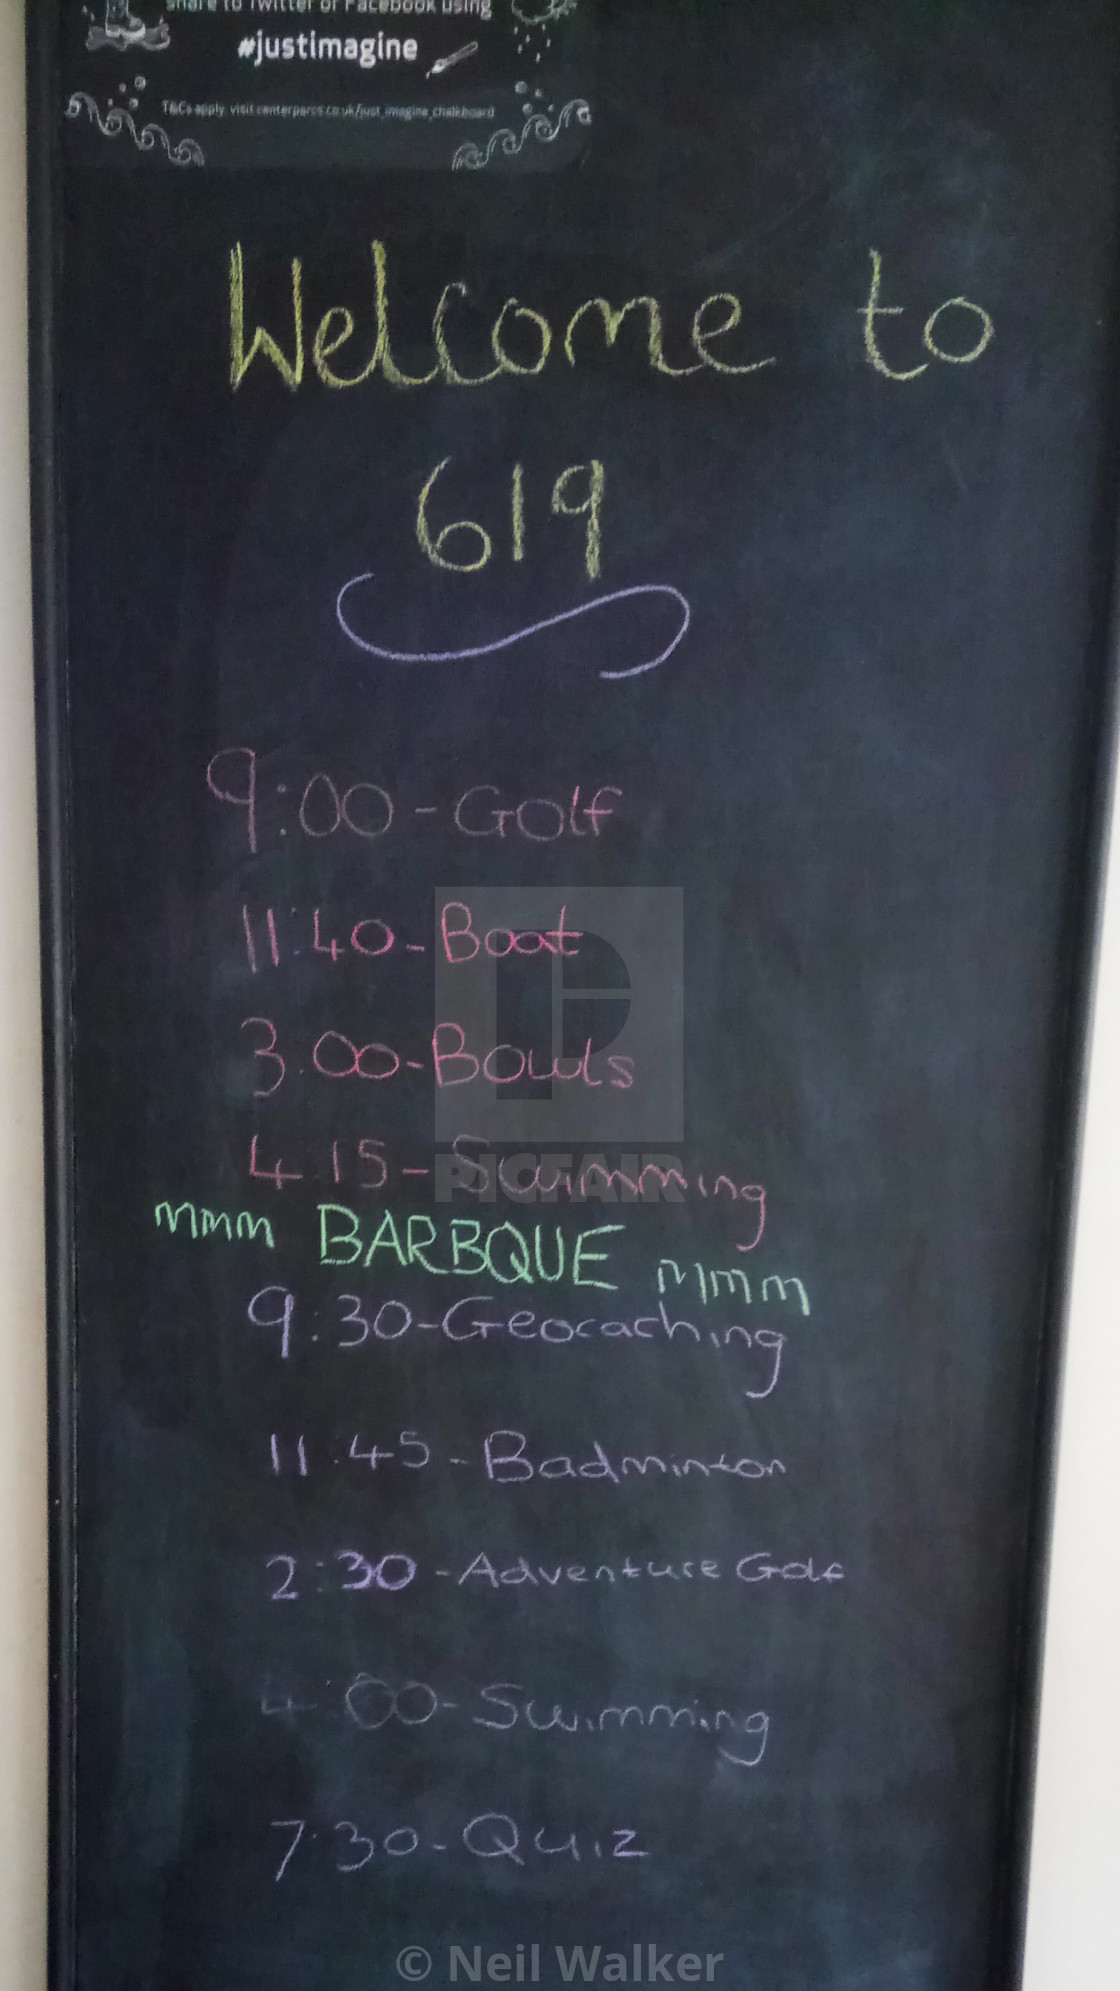 share to Twitter or Facebook using
#justimagine
T&Cs apply. visit centerparcs.co.uk/just_imagine_chalkboard
Welcome to
619
9:00 - Golf
11:40 - Boat
3:00 - Bowls
4:15 - Swimming
mmm BARBQUE mmm
9:30 - Geocaching
11:45 - Badminton
2:30 - Adventure Golf
4:00 - Swimming
7:30 - Quiz
PICFAIR
© Neil Walker